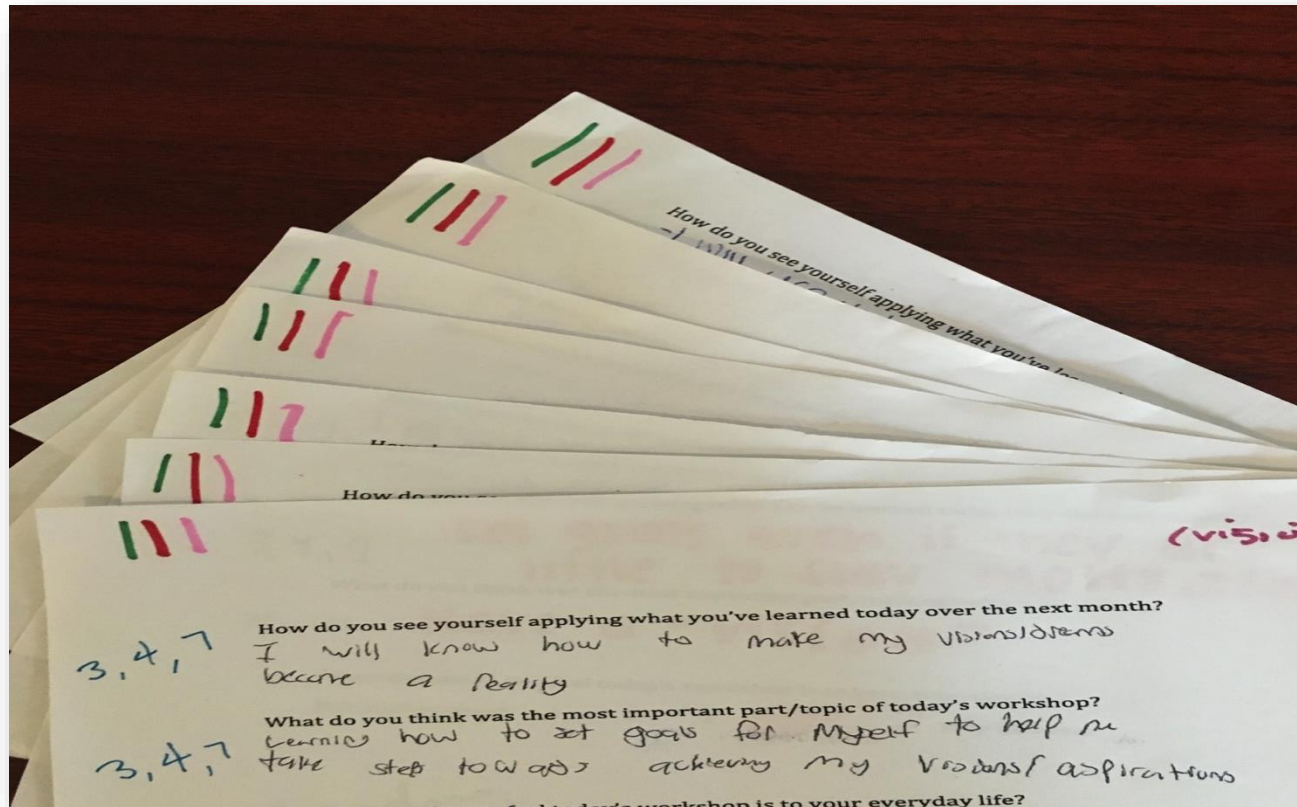 How do you see yourself applying what you've
How do
(vis
How do you see yourself applying what you've learned today over the next month?
3, 4, 7
I will know how to make my visions/drems
become a reality
What do you think was the most important part/topic of today's workshop?
3, 4, 7
Learning how to set goals for myself to help me
take steps towards achieving my visions/ aspirations
workshop is to your everyday life?